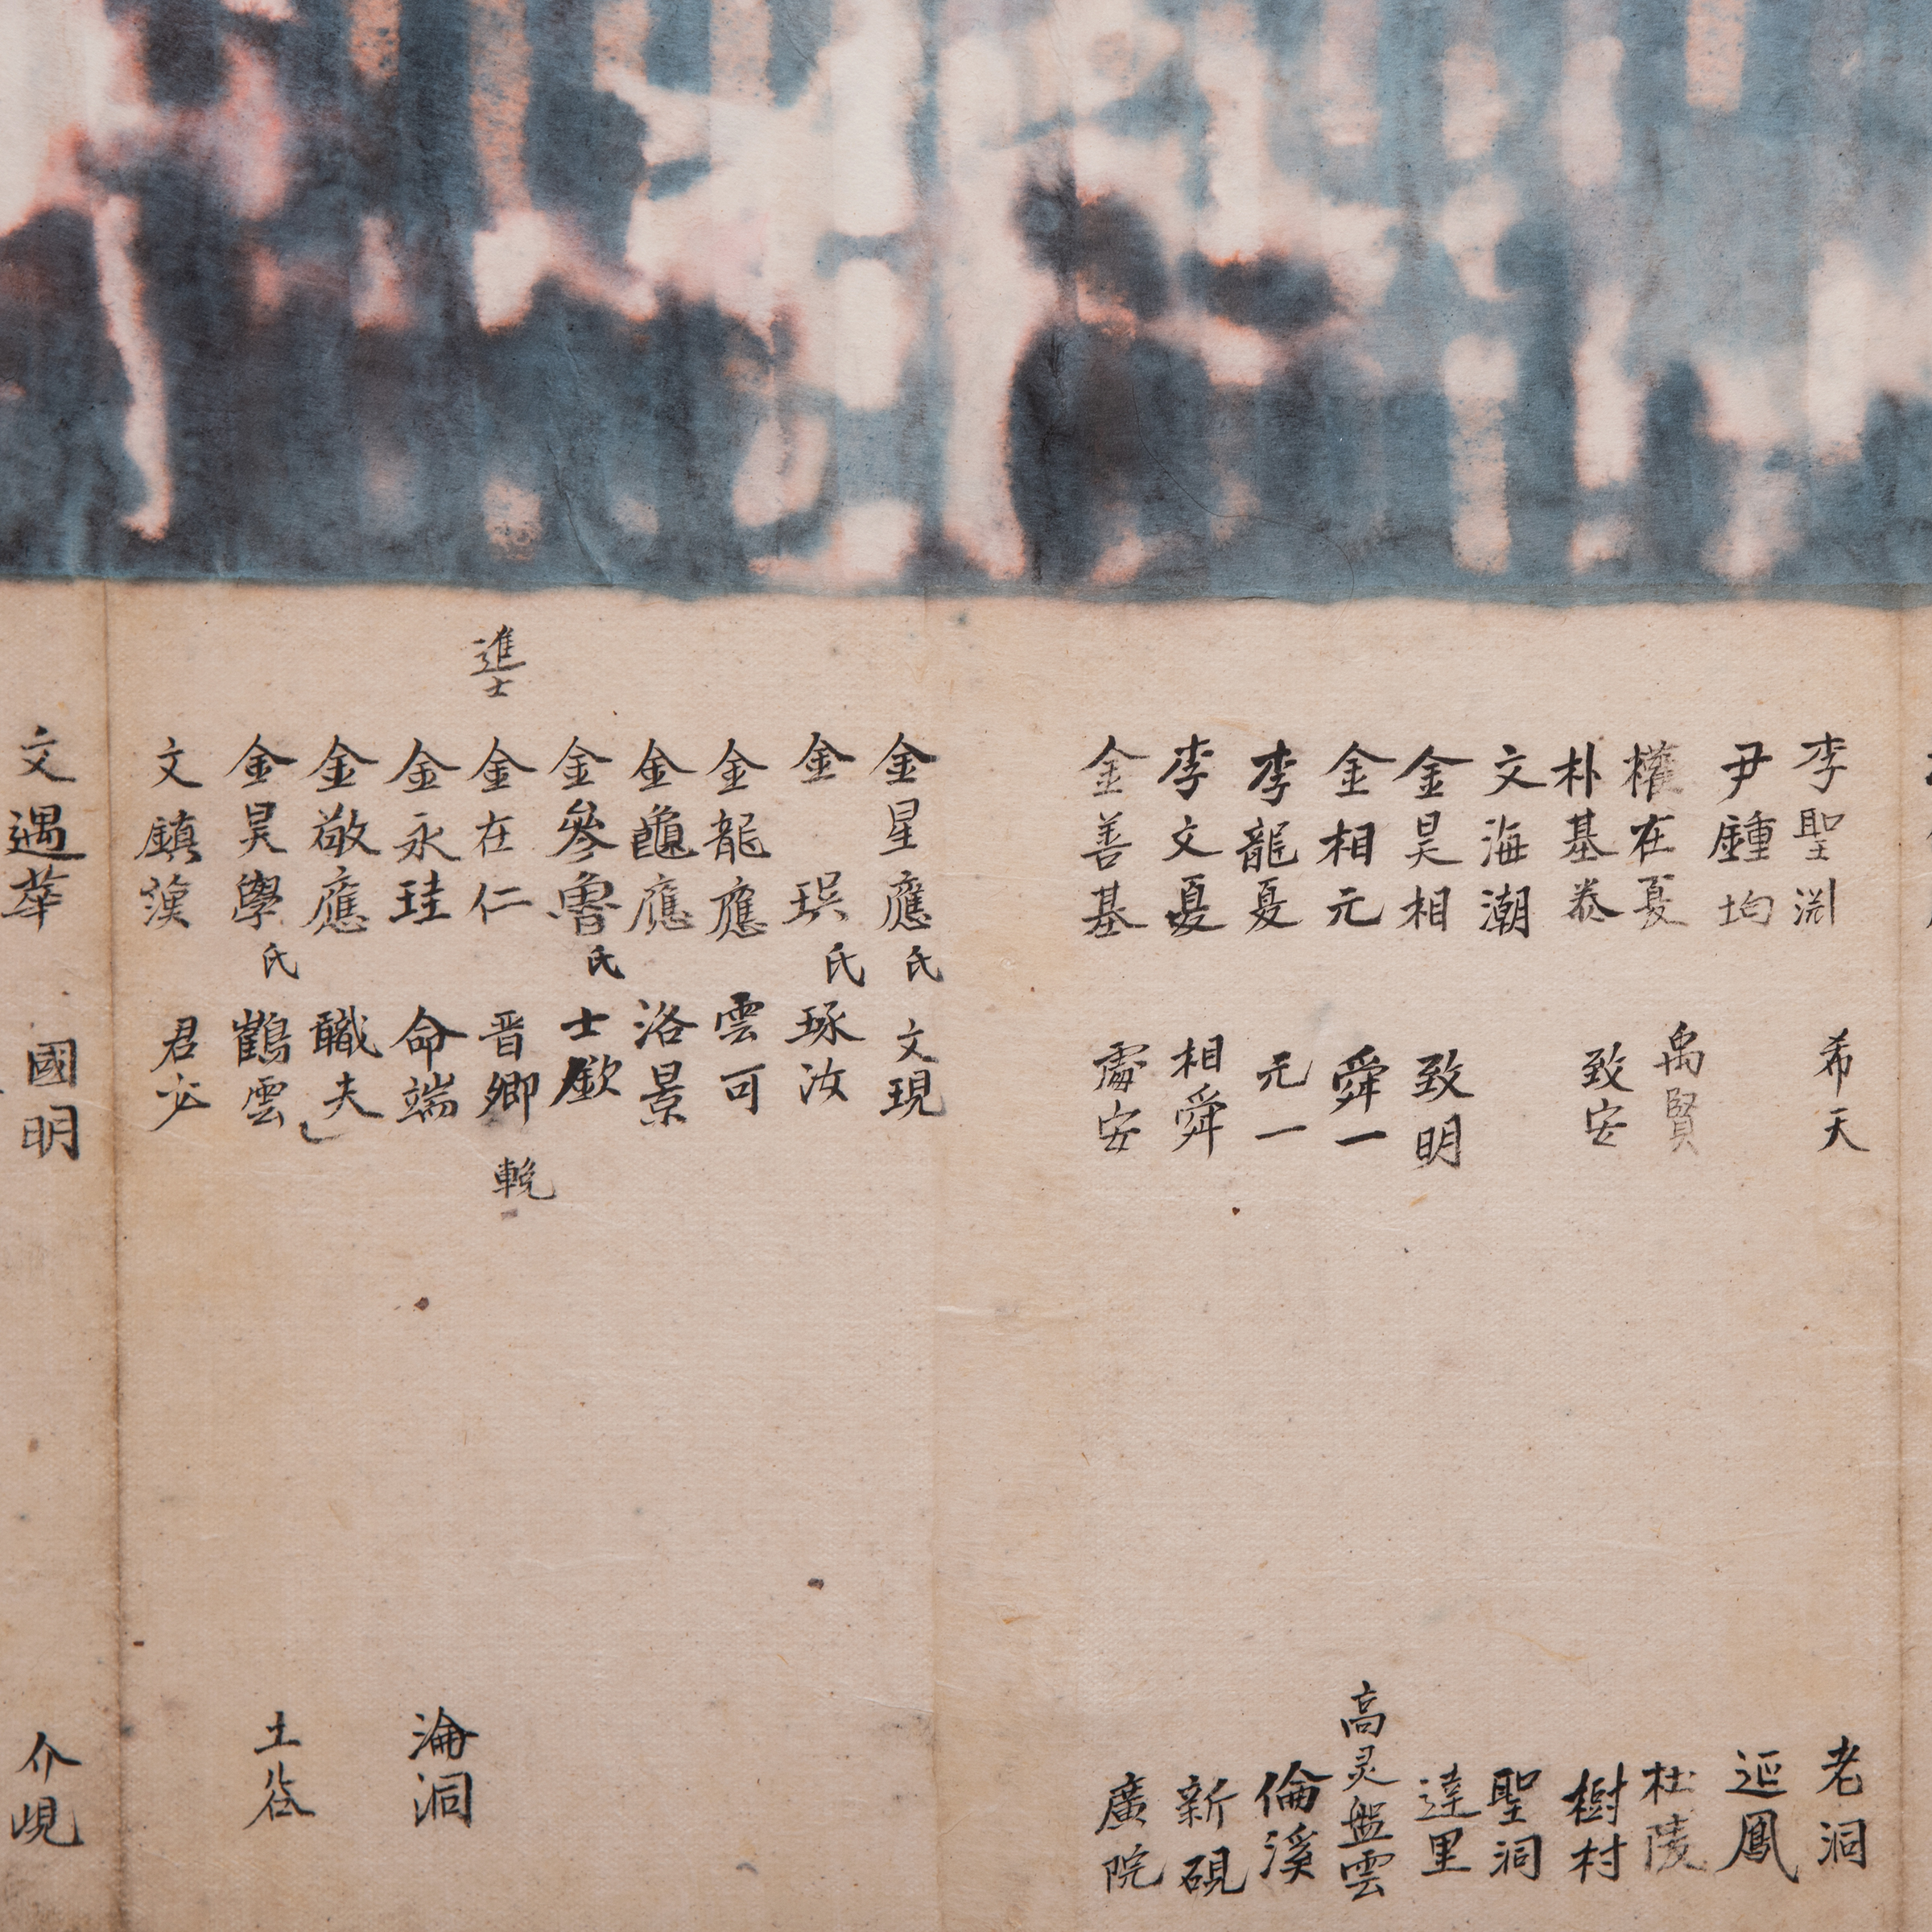 李聖淵 希天 老洞
尹鍾均 𨓏鳳
權在夏 禹賢 杜陵
朴基泰 致安 樹村
文海潮 聖洞
金昊相 致明 達里
金相元 舜一 高灵盤雲
李龍夏 元一 倫溪
李文夏 相舜 新硯
金善基 處安 廣院
金星應氏 文現
金珙氏 琢汝
金龍應 雲可
金龜應 洛景
金參魯氏 士欽
進士 金在仁 晋卿 輓
金永珪 命端 淪洞
金敬應 職夫
金昊學氏 鶴雲 土谷
文鎮漢 君必
文遇華 國明 介峴